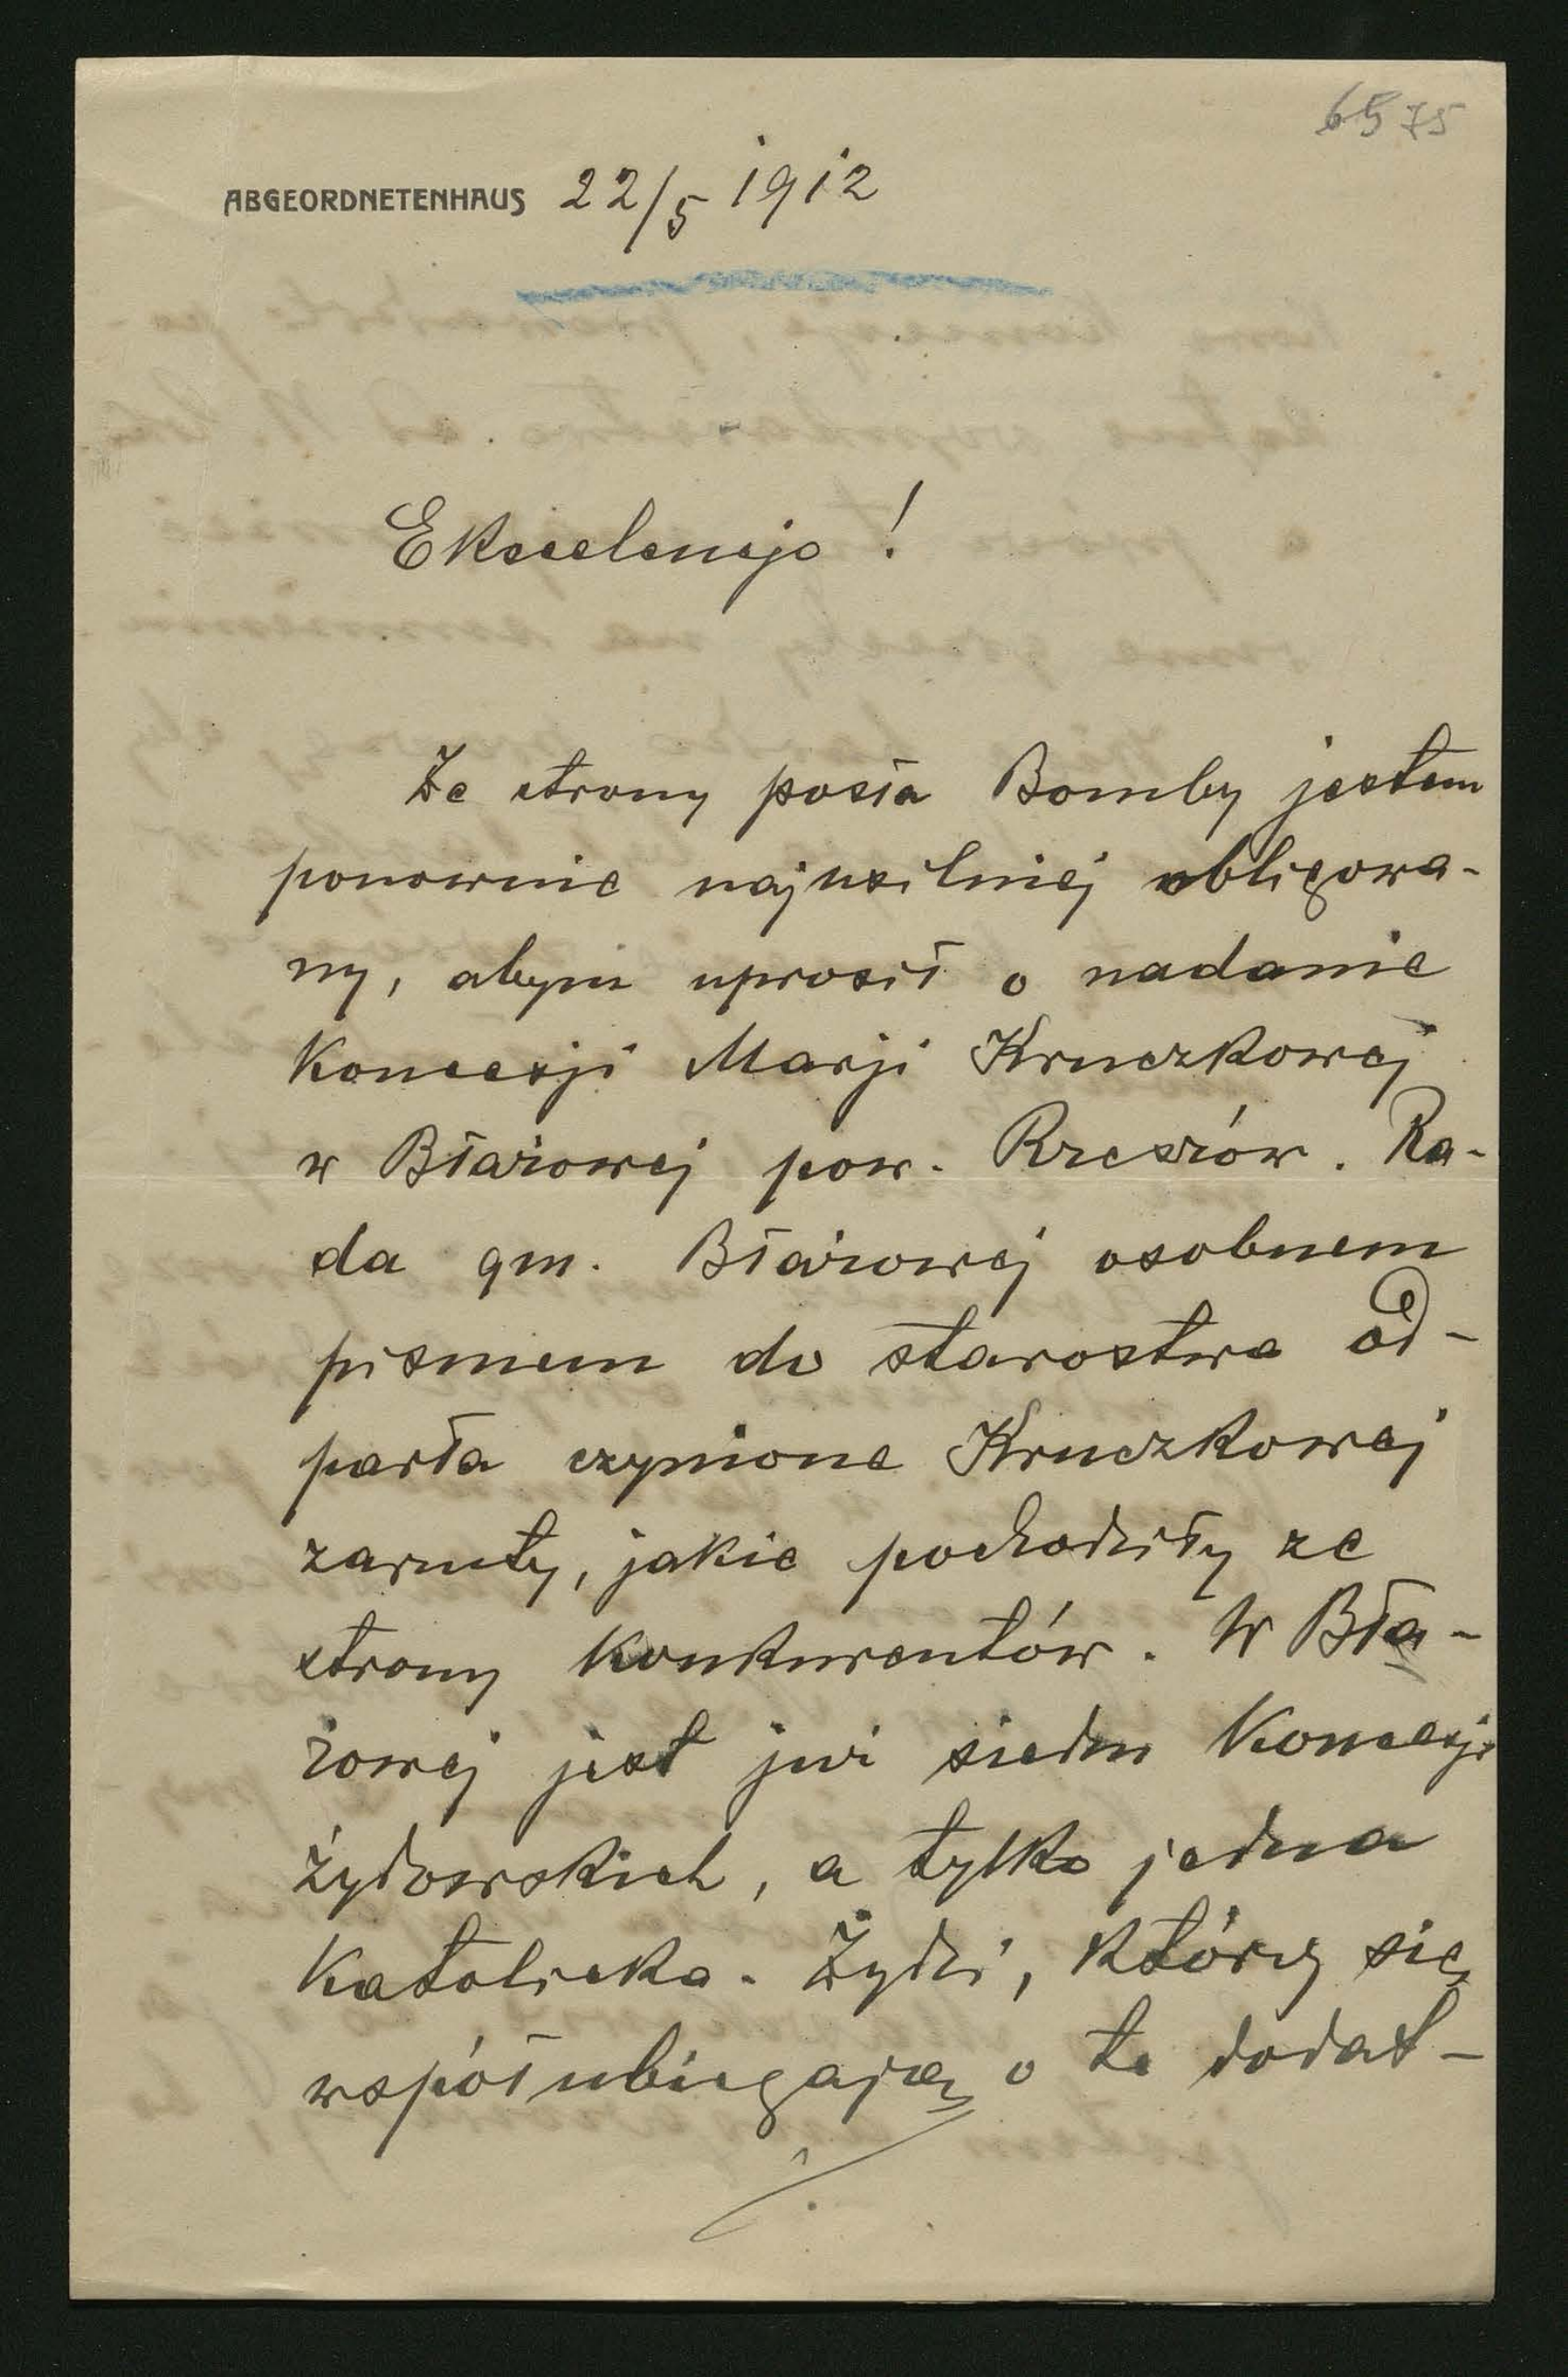 65 75
ABGEORDNETENHAUS 22/5 1912
Ekscelencjo!
Ze strony posła Bomby jestem
ponownie najusilniej obligowa-
ny, abym uprosił o nadanie
Koncesji Marji Kruczkowej
w Błażowej pow. Rzeszów. Ra-
da gm. Błażowej osobnem
pismem do starostwa od-
parła czynione Kruczkowej
zarzuty, jakie pochodziły ze
strony konkurentów. W Bła-
żowej jest już siedm Koncesji
żydowskich, a tylko jedna
Katolicka. Żydzi, którzy się
współubiegają o tę dodat-